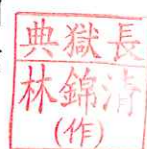 典獄長
林錦清
(作)